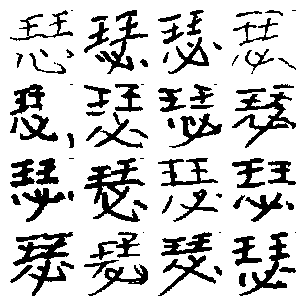 瑟瑟瑟瑟
瑟瑟瑟瑟
瑟瑟瑟瑟
瑟瑟瑟瑟